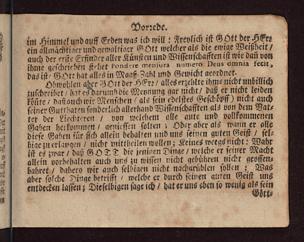 Vorrede.
im Himmel und auff Erden was ich will: Freylich ist GOtt der HErr
ein allmächtiger und gewaltiger GOtt welcher als die ewige Weißheit /
auch der erste Erfinder aller Künsten und Wissenschafften ist wie dan von
ihme geschrieben stehet pondere mensura numero Deus omnia fecit,
das ist / GOtt hat alles in Maaß Zahl und Gewicht geordnet.
Obwohlen aber GOtt der HErr / alles erzehlte ihme nicht unbillich
zuschreibet / hat es darumb die Meynung gar nicht / daß er nicht leiden
könte / daß auch wir Menschen / als sein edelstes Geschöpff / nicht auch
seiner Gutthaten sonderlich allerhand Wissenschafften als von dem Vat-
ter der Liechteren / von welchem alle gute und vollkommenen
Gaben herkommen / geniessen solten; Oder aber als wann er alle
diese Gaben für sich allein behalten und uns seinen guten Geist / sel-
bige zu erlangen / nicht mittheilen wollen; Keines wegs nicht: Wahr
ist es zwar / daß GOTT die jenigen Dinge / welche er seiner Macht
allein vorbehalten auch uns zu wissen nicht gebühren nicht geoffen-
bahret / dahero wir auch selbigen nicht nachgrüblen sollen: Was
aber solche Dinge betrifft / welche er durch seinen guten Geist uns
entdecken lassen; Dieselbigen sage ich / hat er uns eben so wenig als sein
Gött-